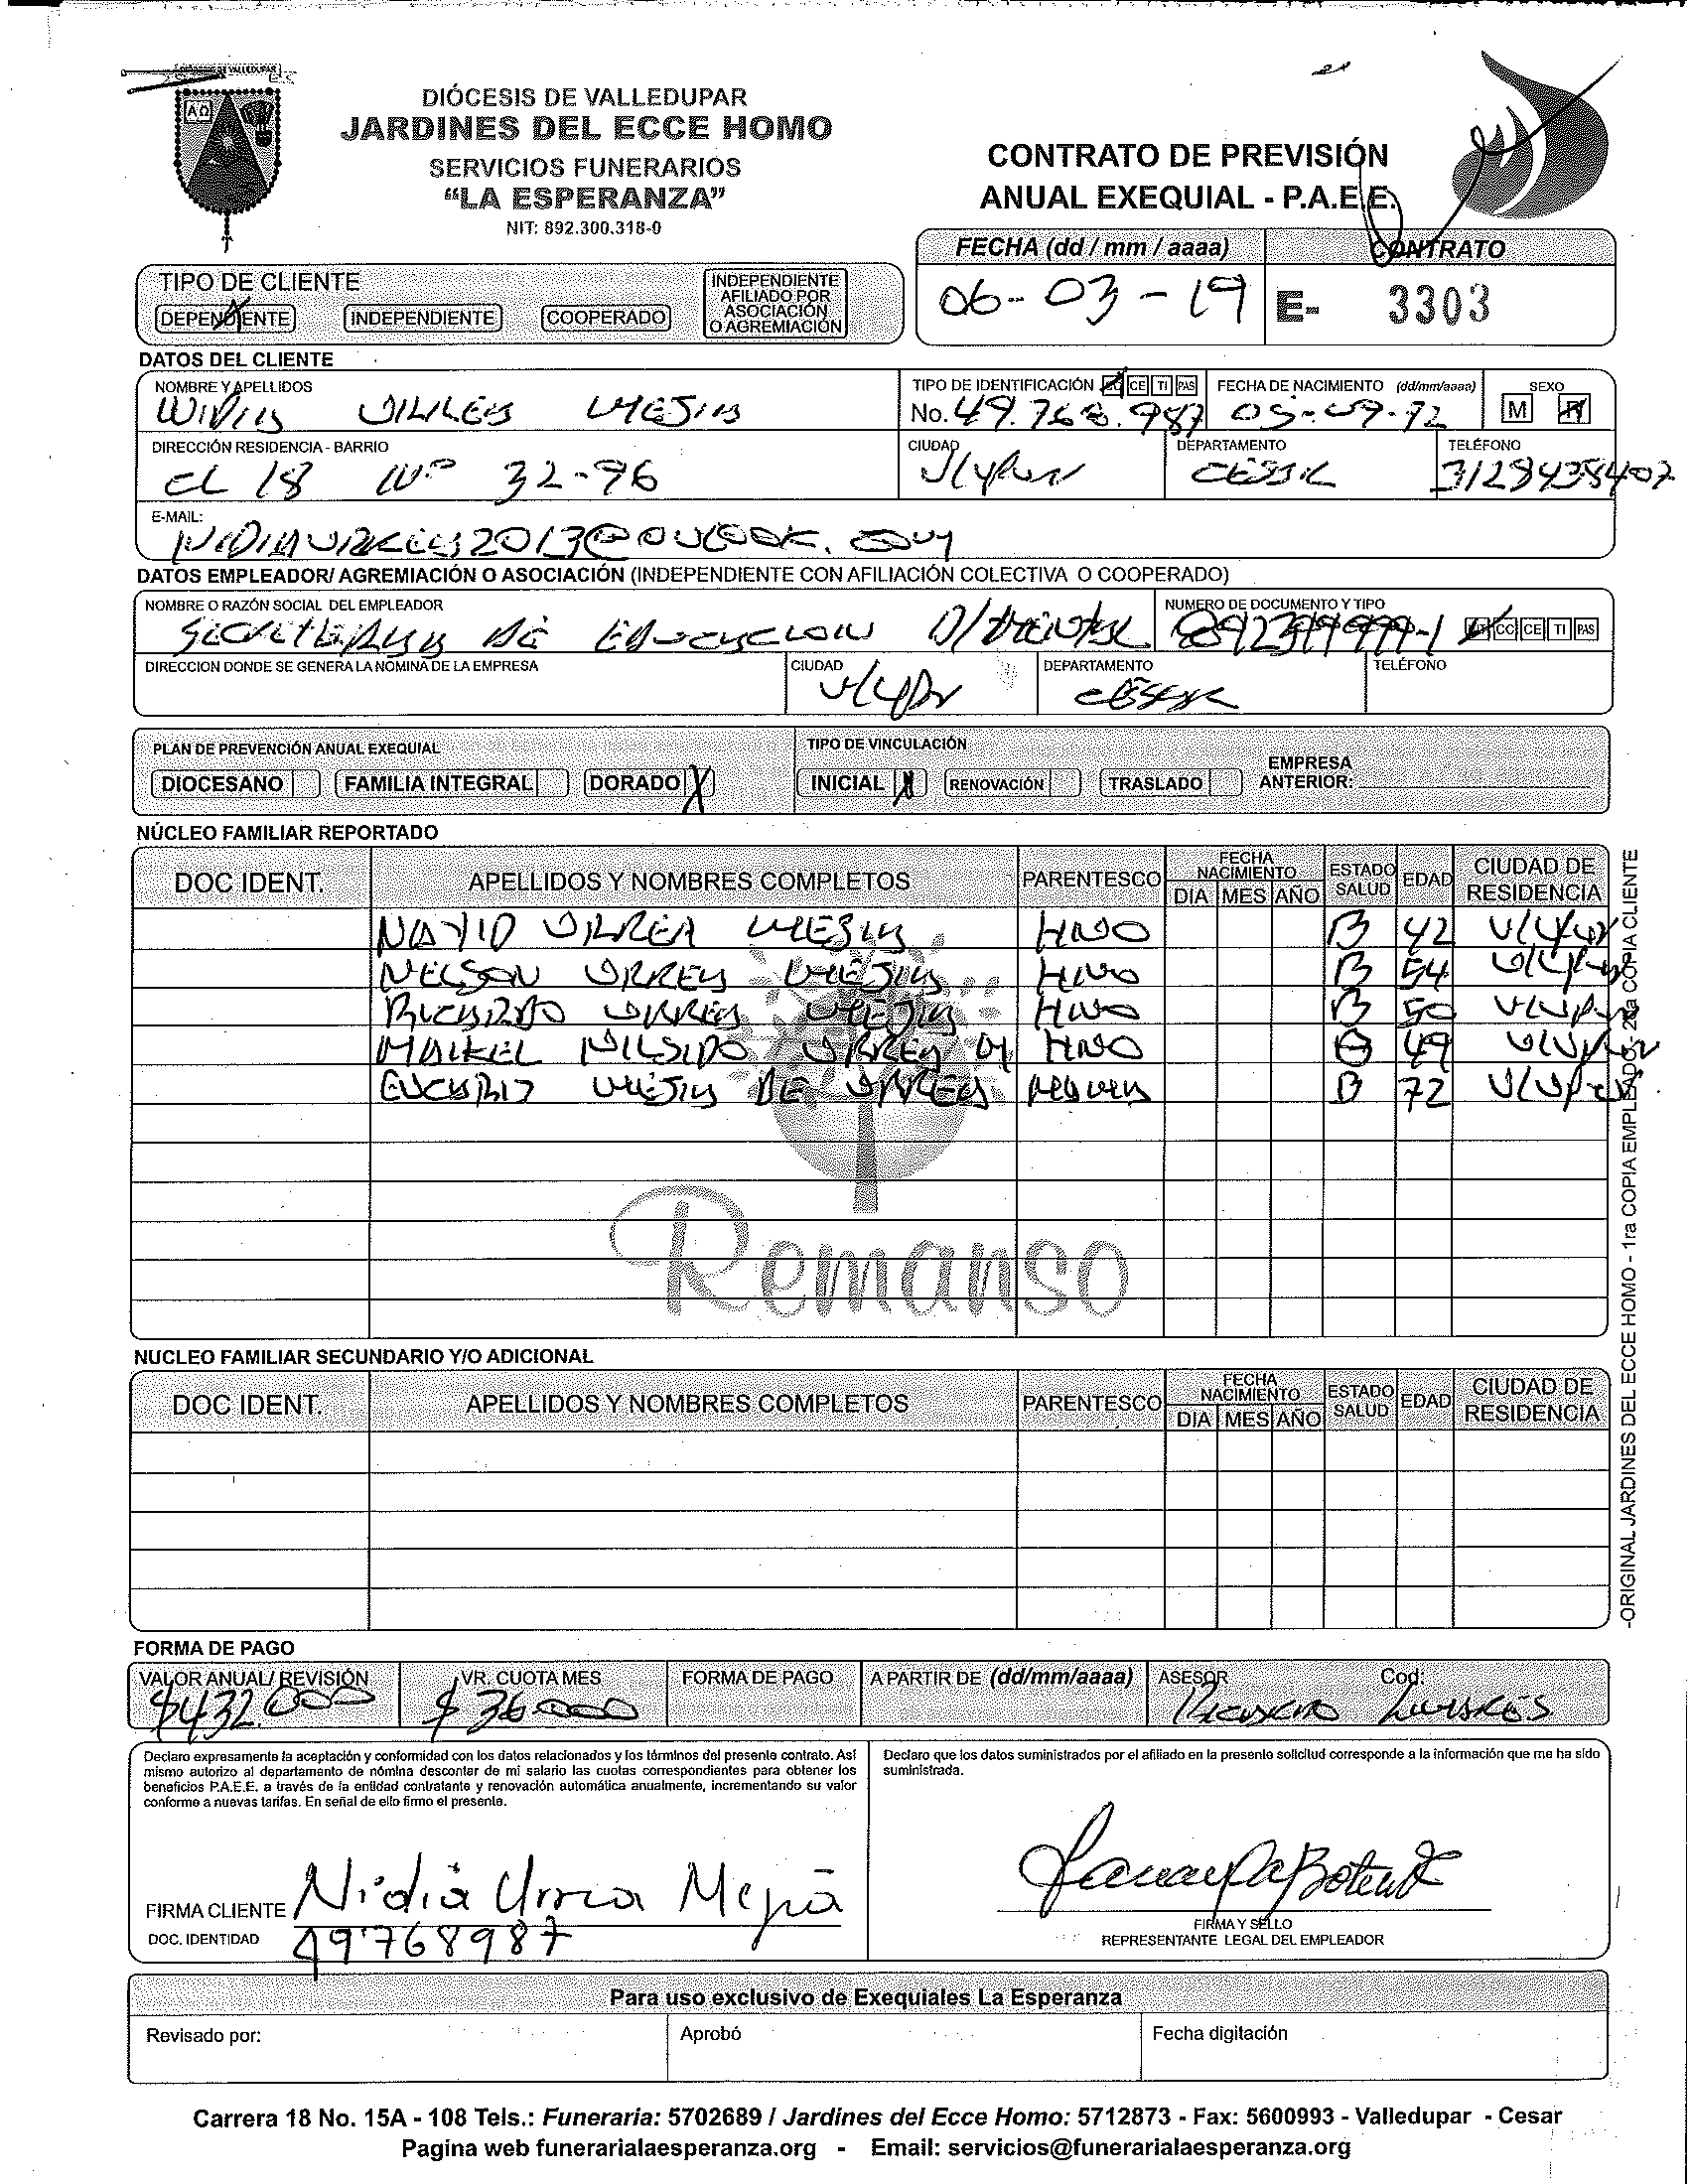 DIÓCESIS DE VALLEDUPAR
JARDINES DEL ECCE HOMO
SERVICIOS FUNERARIOS
“LA ESPERANZA”
NIT: 892.300.318-0
CONTRATO DE PREVISIÓN
ANUAL EXEQUIAL - P.A.E.E.
FECHA (dd / mm / aaaa) CONTRATO
06-03-19 E- 3303
TIPO DE CLIENTE
DEPENDIENTE INDEPENDIENTE COOPERADO INDEPENDIENTE AFILIADO POR ASOCIACIÓN O AGREMIACIÓN
DATOS DEL CLIENTE
NOMBRE Y APELLIDOS TIPO DE IDENTIFICACIÓN CE TI PAS FECHA DE NACIMIENTO (dd/mm/aaaa) SEXO
No. 49.768.987 05-09-72 M F
DIRECCIÓN RESIDENCIA - BARRIO CIUDAD DEPARTAMENTO TELÉFONO
CL 18 Nº 32-76 V/upar CESAR
E-MAIL:
DATOS EMPLEADOR/ AGREMIACIÓN O ASOCIACIÓN (INDEPENDIENTE CON AFILIACIÓN COLECTIVA O COOPERADO)
NOMBRE O RAZÓN SOCIAL DEL EMPLEADOR NUMERO DE DOCUMENTO Y TIPO
DE EDUCACION CC CE TI PAS
DIRECCION DONDE SE GENERA LA NOMINA DE LA EMPRESA CIUDAD DEPARTAMENTO TELÉFONO
V/upar CESAR
PLAN DE PREVENCIÓN ANUAL EXEQUIAL TIPO DE VINCULACIÓN
DIOCESANO FAMILIA INTEGRAL DORADO X INICIAL X RENOVACIÓN TRASLADO EMPRESA ANTERIOR:
NÚCLEO FAMILIAR REPORTADO
DOC IDENT. APELLIDOS Y NOMBRES COMPLETOS PARENTESCO FECHA NACIMIENTO DIA MES AÑO ESTADO SALUD EDAD CIUDAD DE RESIDENCIA
URREA MEJIA HNO B 42 V/upar
NELSON URREA MEJIA HNO B 54 V/upar
URREA MEJIA HNO B 50 V/upar
MAIKEL URREA M HNO B 49 V/upar
MEJIA DE URREA B 72 V/upar
Remanso
NUCLEO FAMILIAR SECUNDARIO Y/O ADICIONAL
DOC IDENT. APELLIDOS Y NOMBRES COMPLETOS PARENTESCO FECHA NACIMIENTO DIA MES AÑO ESTADO SALUD EDAD CIUDAD DE RESIDENCIA
-ORIGINAL JARDINES DEL ECCE HOMO - 1ra COPIA EMPLEADO, 2da COPIA CLIENTE
FORMA DE PAGO
VALOR ANUAL/ REVISIÓN VR. CUOTA MES FORMA DE PAGO A PARTIR DE (dd/mm/aaaa) ASESOR Cod:
$432.000 $ 36.000
Declaro expresamente la aceptación y conformidad con los datos relacionados y los términos del presente contrato. Así
mismo autorizo al departamento de nómina descontar de mi salario las cuotas correspondientes para obtener los
beneficios P.A.E.E. a través de la entidad contratante y renovación automática anualmente, incrementando su valor
conforme a nuevas tarifas. En señal de ello firmo el presente.
Declaro que los datos suministrados por el afiliado en la presente solicitud corresponde a la información que me ha sido
suministrada.
FIRMA CLIENTE Nidia Urrea Mejia
DOC. IDENTIDAD 49768987
FIRMA Y SELLO
REPRESENTANTE LEGAL DEL EMPLEADOR
Para uso exclusivo de Exequiales La Esperanza
Revisado por: Aprobó Fecha digitación
Carrera 18 No. 15A - 108 Tels.: Funeraria: 5702689 / Jardines del Ecce Homo: 5712873 - Fax: 5600993 - Valledupar - Cesar
Pagina web funerarialaesperanza.org - Email: servicios@funerarialaesperanza.org